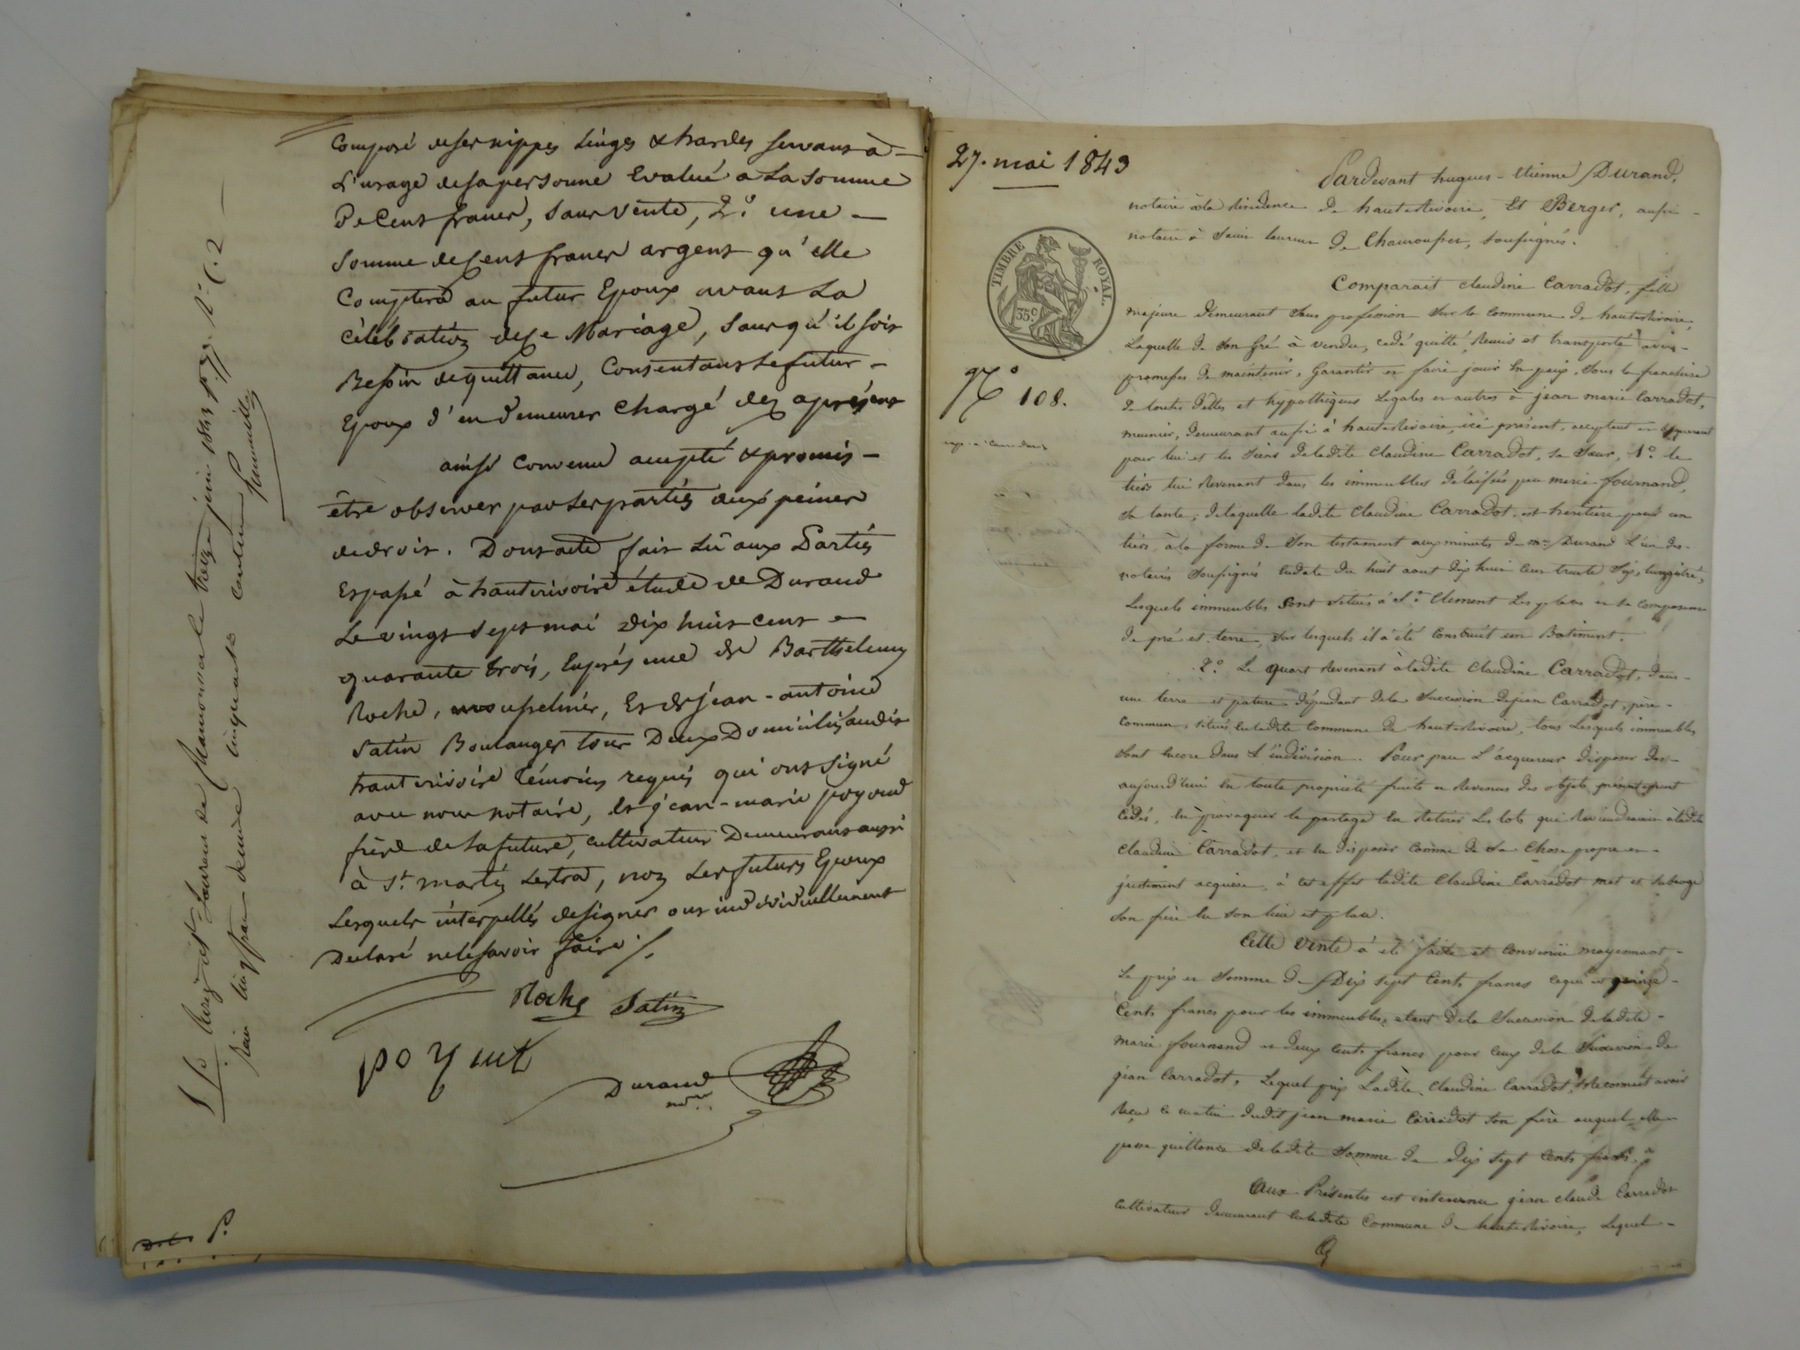 Composé de ses nippes linges & hardes servant à
L'usage de sa personne Evalué a La somme
De Cent francs, sans vente, 2.° une
Somme de Cent francs argent qu'elle
Comptera au futur Epoux avant La
Célébration de Ce Mariage, sans qu'il soit
Besoin de quittance, Consentant Le futur
Epoux d'en demeurer Chargé dez aprésent
ainsi Convenu accepté & promis
être observer par Les parties aux peines
de droit. Dont acte fait Lu aux Parties
Et passé à hauterivoire étude de Durand
Le vingt sept mai dix huit cent
quarante trois, En présence de Barthelemy
Roche, mousselinier, Et de jean-antoine
Satin Boulanger tous Deux Domiciliés audit
hauterivoire témoins requis qui ont signé
avec nous notaire, Et jean-marie poyand
frère de La future, cultivateur Demeurant aussi
à St. martin Lestra, non Les futurs Epoux
Lesquels interpellés de signer ont individuellement
Declaré ne le savoir faire ./.
Roche Satin
poyant
Durand
nore
P.
Enregistré à St Laurent de Chamousset le treize juin 1843
Reçu cinq francs dixième cinquante centimes
27. mai 1843
TIMBRE ROYAL.
35c
N° 108.
Pardevant hugues-etienne Durand,
notaire à la résidence de hauterivoire, Et Berger, aussi
notaire à Saint laurent de Chamousset, soussignés.
Comparait claudine Carradot, fille
majeure demeurant sans profession sur la commune de hauterivoire,
Laquelle de son gré à vendu, cédé quitté, Remis et transporté avec
promesses de maintenir, Garantir et faire jouir En paix, sous la franchise
de toutes dettes et hypothèques Légales et autres à jean marie Carradot,
meunier, demeurant aussi à hauterivoire, ici présent, acceptant et
pour lui et les siens de ladite claudine Carradot, sa Sœur, 1.° le
tiers lui Revenant dans les immeubles délaissés par marie fournand,
sa tante, de laquelle ladite claudine Carradot est héritière pour un
tiers, à la forme de son testament aux minutes de me Durand L'un des
notaires soussignés Endate du huit aout dix huit cent trente six, Enregistré,
Lesquels immeubles sont situés à St. Clement Les places et se composent
de pré et terre, sur lesquels il a été Construit un Batiment.
2.° Le quart Revenant à ladite claudine Carradot, dans
une terre et pature dépendant de la Succession de jean Carradot, père
commun, situés En ladite commune de hauterivoire, tous Lesquels immeubles
sont Encore dans L'indivision. Pour par L'acquereur disposer dès
aujourd'hui En toute propriété fruits et Revenus des objets présentement
Cédés, En provoquer le partage En Retirer Les lots qui Reviendraient à ladite
Claudine Carradot, et En disposer Comme de sa Chose propre et
justement acquise, à cet effet ladite claudine Carradot met et subroge
son frère En son lieu et place.
Cette Vente à été faite et convenue moyennant
Le prix et Somme de Dix sept Cents francs ce qui est quinze
Cents francs pour les immeubles étant de la Succession de ladite
marie fournand et deux Cents francs pour Ceux de la Succession de
jean Carradot, Lequel prix Ladite Claudine Carradot, Reconnait avoir
Reçu ce matin dudit jean marie Carradot son frère auquel elle
passe quittance de ladite Somme de dix sept Cents francs.
Aux Présentes est intervenu jean claude Carradot
cultivateur demeurant En ladite Commune de hauterivoire, Lequel